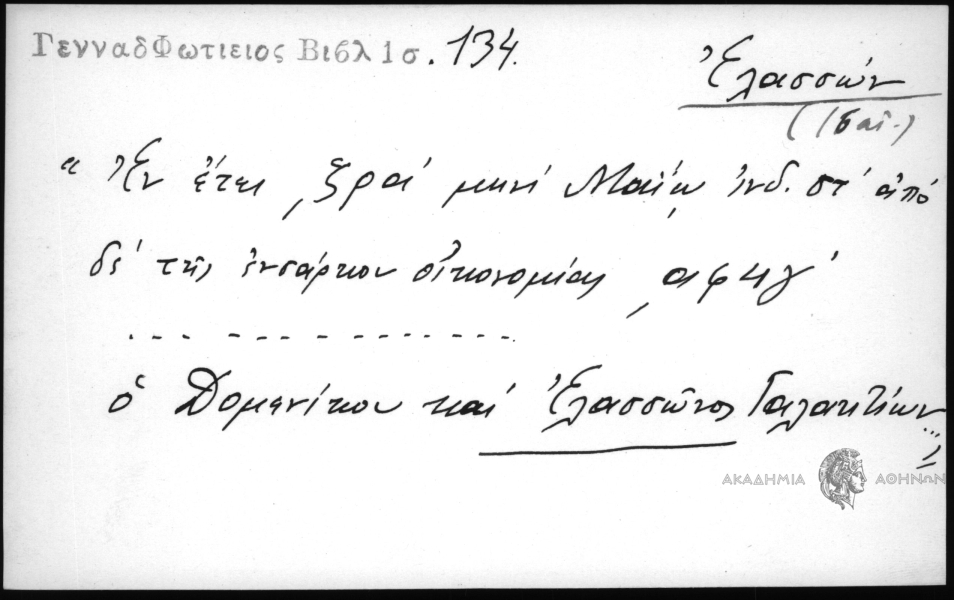 ΓενναδΦωτιειος Βιβλ 1 σ. 134.
Ἐλασσών
(16 αἰ.)
" Ἐν ἔτει ͵ζρα΄ μηνί Μαΐῳ ἰνδ. στ΄ ἀπό
δέ τῆς ἐνσάρκου οἰκονομίας ͵αφηγ΄
... --- -- - - - - - - - - - -.
ὁ Δομενίκου καί Ἐλασσῶνος Γαλακτίων..."
ΑΚΑΔΗΜΙΑ ΑΘΗΝΩΝ